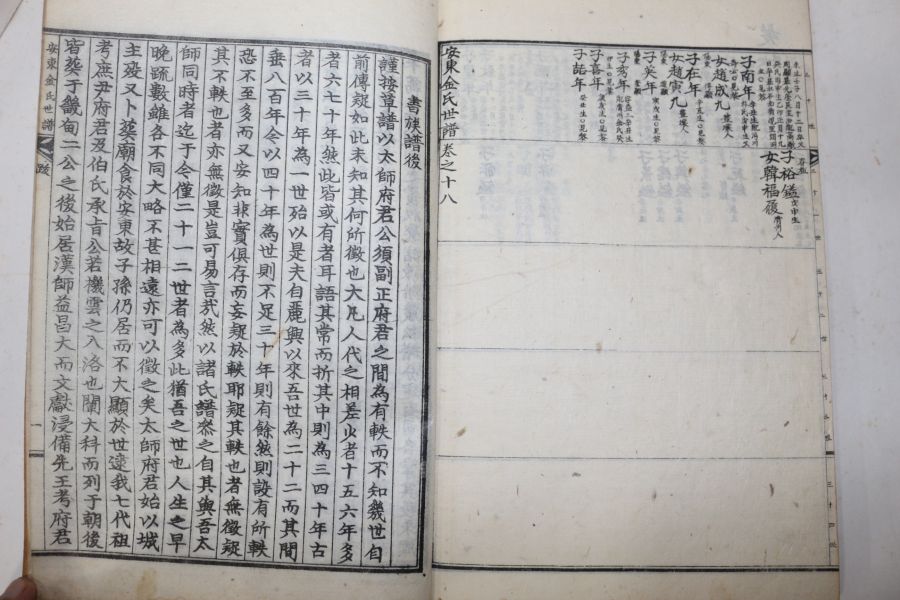 子裕鎰
女韓福履
子南年
女趙成九
子在年
女趙寅九
子英年
子秀年
子喜年
子誥年
安東金氏世譜 卷之十八
書族譜後
謹按草譜以太師府君公須副正府君之間為有軼而不知幾世自
前傳疑如此未知其何所徵也大凡人代之相差少者十五六年多
者六七十年然此皆或有者耳語其常而折其中則為三四十年古
者以三十年為一世殆以是夫自麗興以來吾世為二十二而其間
垂八百年令以四十年為世則不足三十年則有餘然則設有所軼
恐不至多而又安知非實俱存而妄疑於軼耶疑其軼也者無徵疑
其不軼也者亦無徵是豈可易言哉然以諸氏譜叅之自其與吾太
師同時者迄于今僅二十一二世者為多此猶吾之世也人生之早
晚疏數雖各不同大略不甚相遠亦可以徵之矣太師府君始以城
主歿又卜葬廟食於安東故子孫仍居而不大顯於世逮我七代祖
考庶尹府君及伯氏承旨公若機雲之入洛也闡大科而列于朝後
皆葬于畿甸二公之後始居漢師益昌大而文獻浸備先王考府君
安東金氏世譜
跋
一